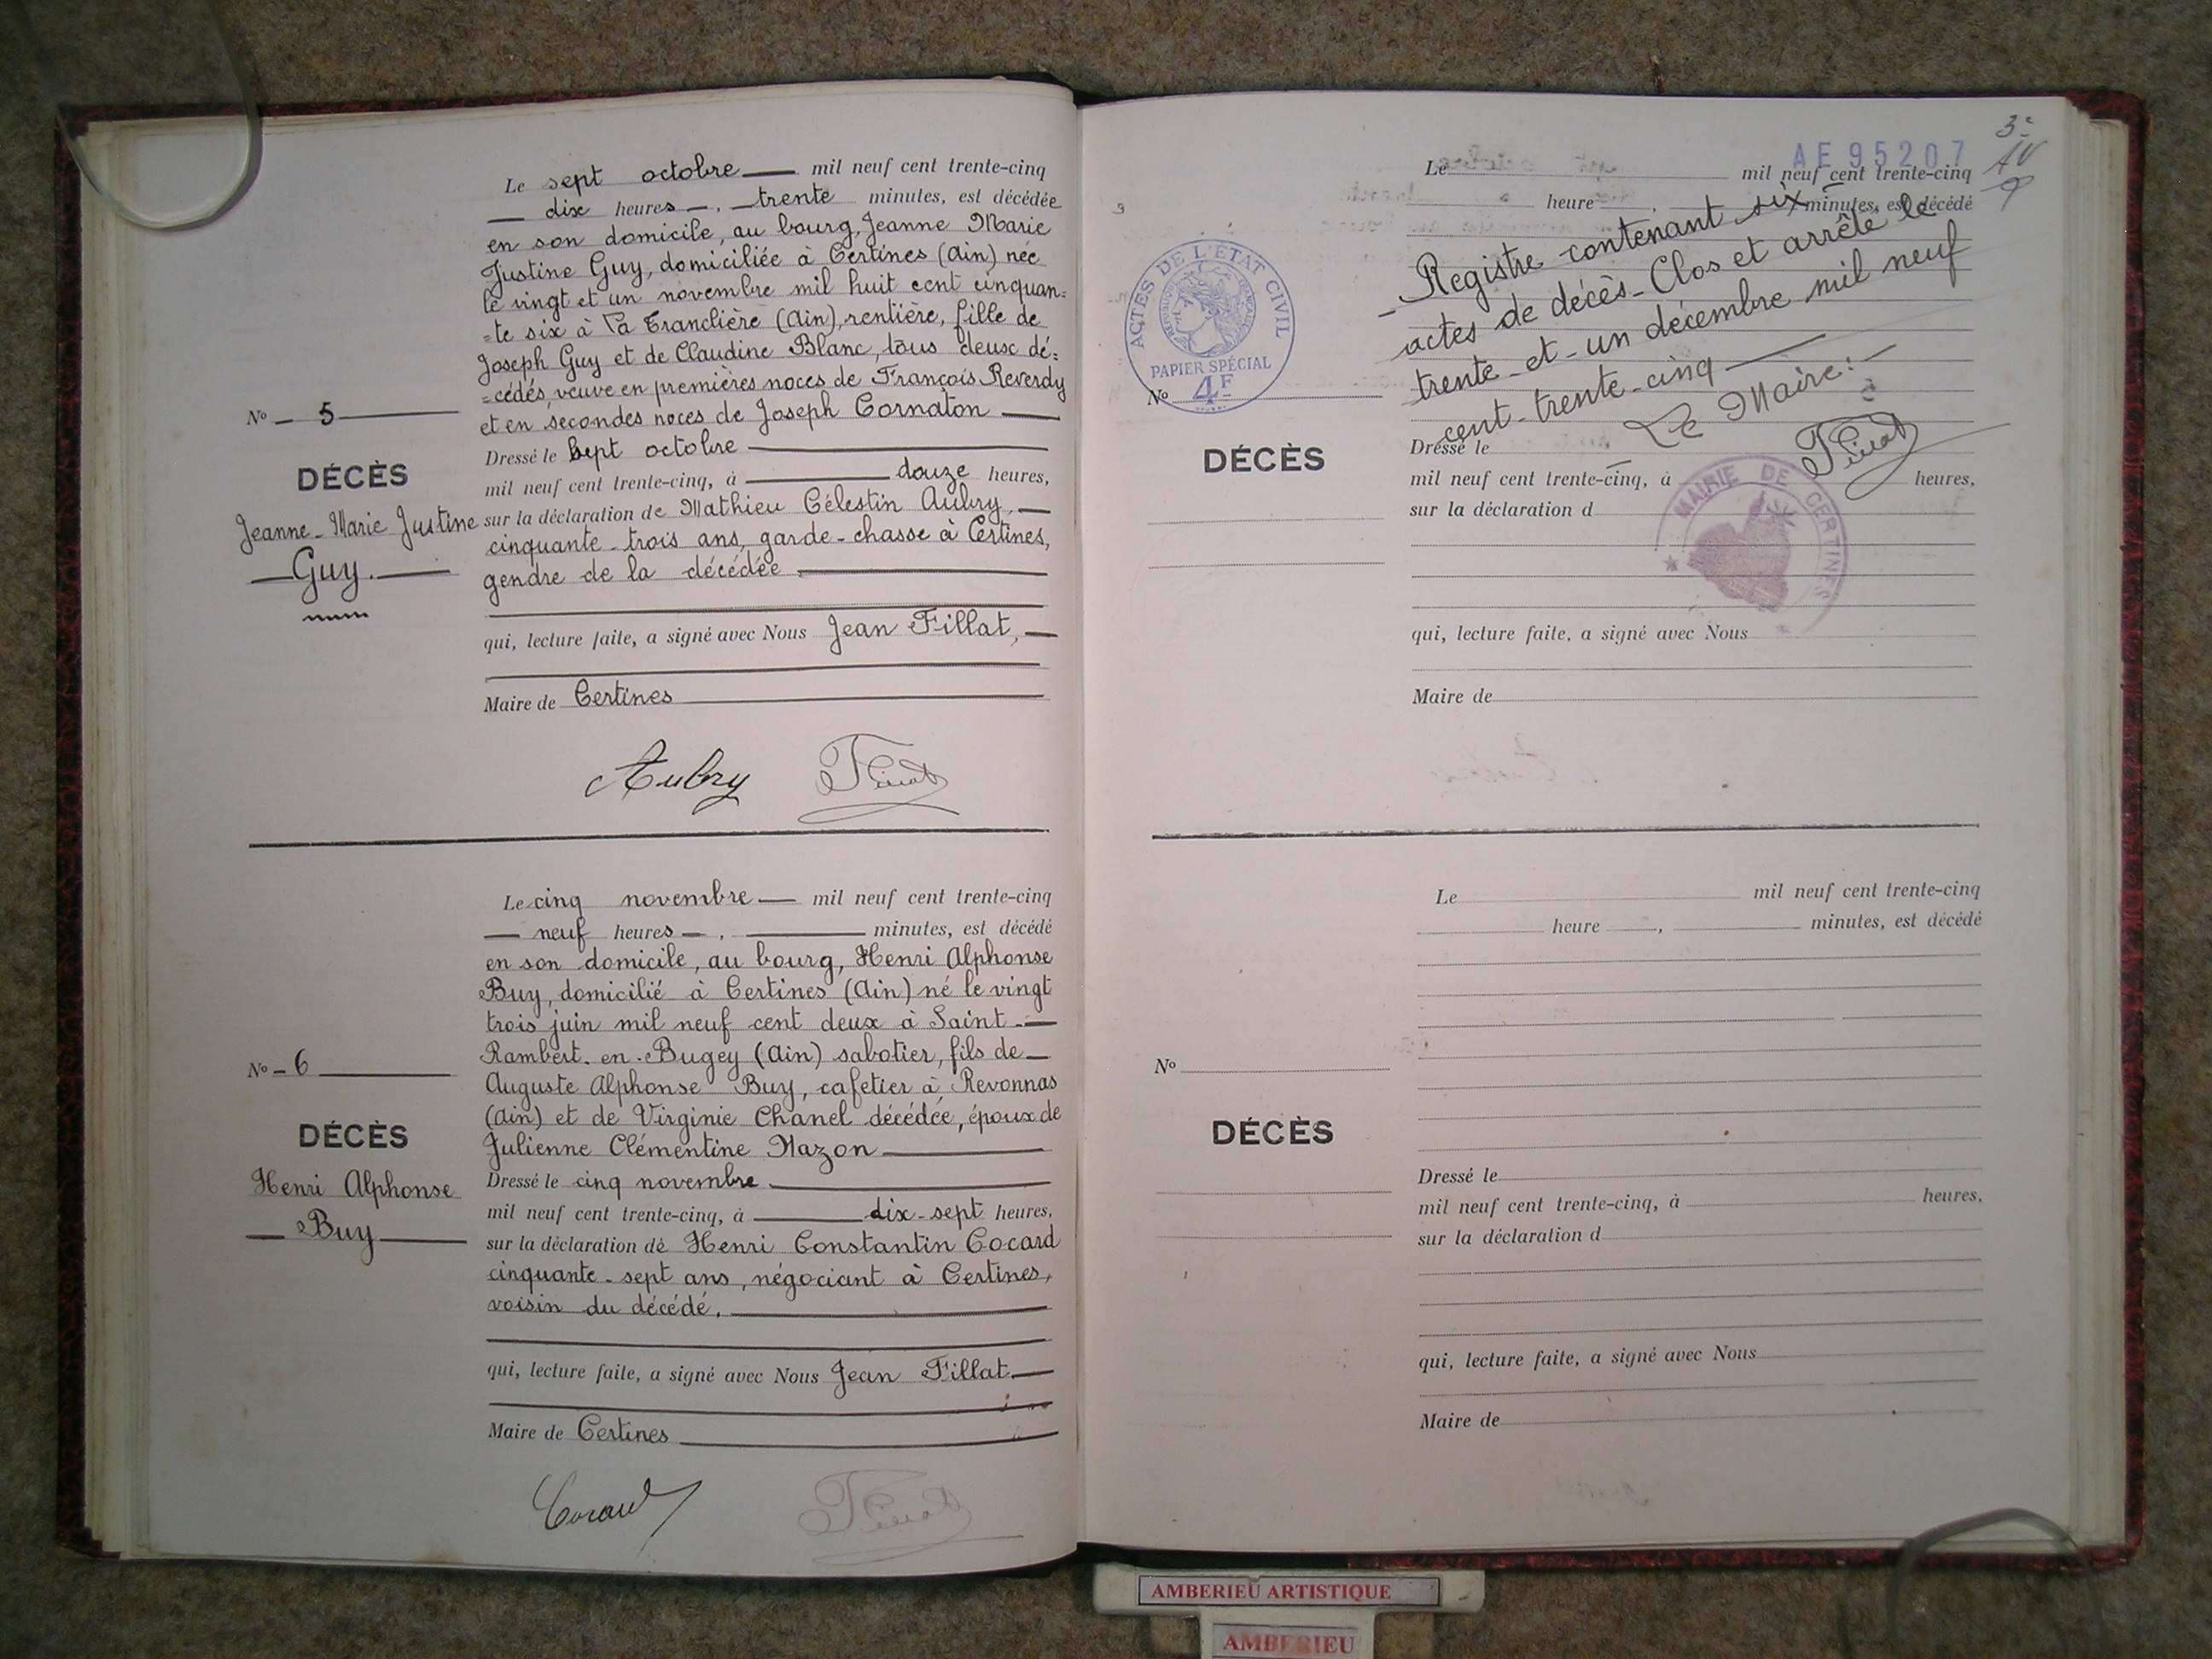 Le sept octobre — mil neuf cent trente-cinq
— dix heures —, — trente minutes, est décédée
en son domicile, au bourg, Jeanne Marie
Justine Guy, domiciliée à Certines (Ain) née
le vingt et un novembre mil huit cent cinquan=
=te six à La Tranclière (Ain), rentière, fille de
Joseph Guy et de Claudine Blanc, tous deux dé=
=cédés, veuve en premières noces de François Reverdy
et en secondes noces de Joseph Cornaton —
No — 5 —
DÉCÈS
Jeanne-Marie Justine
— Guy. —
Dressé le sept octobre —
mil neuf cent trente-cinq, à — douze heures,
sur la déclaration de Mathieu Célestin Aubry, —
cinquante-trois ans, garde-chasse à Certines,
gendre de la décédée. —
qui, lecture faite, a signé avec Nous Jean Fillat, —
Maire de Certines —
Aubry Fillat
Le cinq novembre — mil neuf cent trente-cinq
— neuf heures —, — minutes, est décédé
en son domicile, au bourg, Henri Alphonse
Buy, domicilié à Certines (Ain) né le vingt
trois juin mil neuf cent deux à Saint-—
Rambert-en-Bugey (Ain) sabotier, fils de —
Auguste Alphonse Buy, cafetier à Revonnas
(Ain) et de Virginie Chanel décédée, époux de
Julienne Clémentine Mazon —
No — 6 —
DÉCÈS
Henri Alphonse
— Buy —
Dressé le cinq novembre —
mil neuf cent trente-cinq, à — dix-sept heures,
sur la déclaration de Henri Constantin Cocard
cinquante-sept ans, négociant à Certines,
voisin du décédé. —
qui, lecture faite, a signé avec Nous Jean Fillat —
Maire de Certines —
Cocard Fillat
3e
AE95207
Le mil neuf cent trente-cinq
heure , minutes, est décédé
Registre contenant six
actes de décès - Clos et arrêté le
trente-et-un décembre mil neuf
cent-trente-cinq —
Le Maire:
Fillat
ACTES DE L'ÉTAT CIVIL
RÉPUBLIQUE FRANÇAISE
PAPIER SPÉCIAL
4F
No
DÉCÈS
Dressé le
mil neuf cent trente-cinq, à heures,
sur la déclaration d
MAIRIE DE CERTINES
qui, lecture faite, a signé avec Nous
Maire de
Le mil neuf cent trente-cinq
heure , minutes, est décédé
No
DÉCÈS
Dressé le
mil neuf cent trente-cinq, à heures,
sur la déclaration d
qui, lecture faite, a signé avec Nous
Maire de
AMBERIEU ARTISTIQUE
AMBERIEU